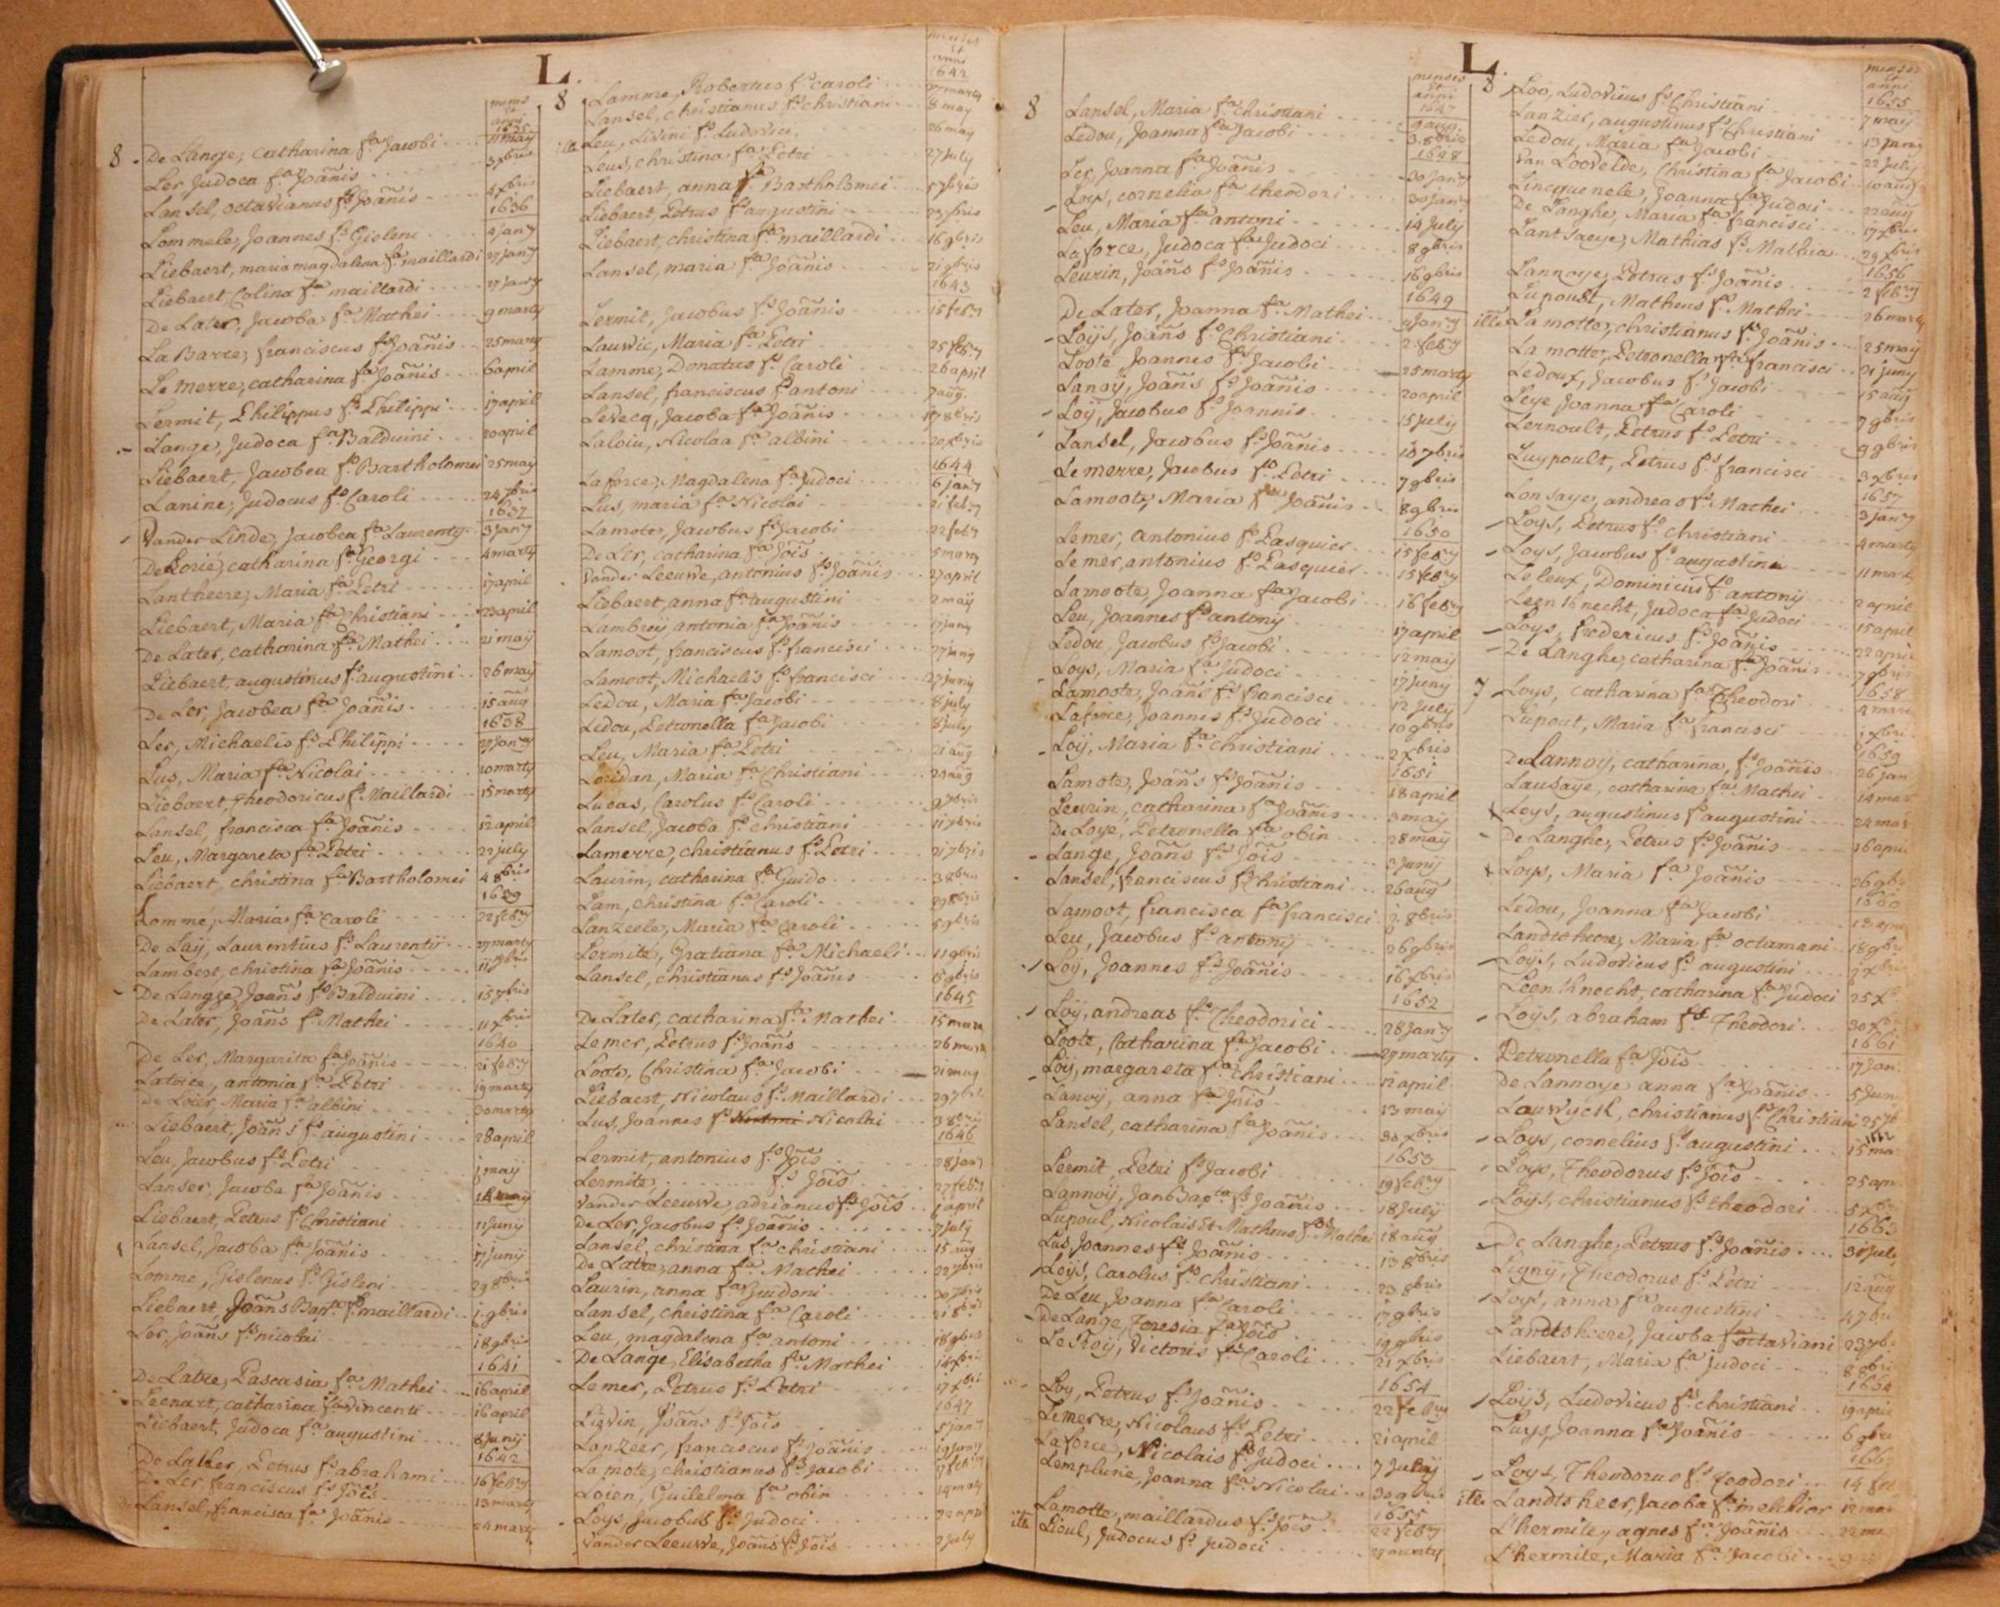 L.
menses et anni
1635
8 De Lange, catharina fa Jacobi 11 may
Ler Judoca fa Joañis 3 xbris
Lansel, octavianus fs Joañis 4 xbris
1636
Lommele, Joannes fs Gisleni 4 jany
Liebaert, maria magdalena fa maillardi 27 jany
Liebaert, Colina fa maillardi 27 jany
De Later, Jacoba fa Mathei 9 marty
La Barre, franciscus fs Joañis 25 marty
Le merre, catharina fa Joañis 6 april
Lermit, Philippus fs Philippi 17 april
Lange, Judoca fa Balduini 20 april
Liebaert, Jacobea fa Bartholomei 25 may
Lanine, Judocus fs Caroli 24 xbris
1637
Vander Linde, Jacobea fa Laurenty 3 jany
De Lorié, catharina fa Georgi 4 marty
Lantheere, Maria fa Petri 17 april
Liebaert, Maria fa Christiani 23 april
De Later, catharina fa Mathei 21 may
Liebaert, augustinus fs augustini 26 may
De Ler, Jacobea fa Joañis 15 aug
1638
Ler, Michaelis fs Philippi 27 jany
Lus, Maria fa Nicolai 10 marty
Liebaert, Theodoricus fs Maillardi 15 marty
Lansel, francisca fa Joañis 12 april
Leu, Margareta fa Petri 22 july
Liebaert, christina fa Bartholomei 4 8bris
1639
Lommé, Maria fa Caroli 22 feby
De Laÿ, Laurentius fs Laurentÿ 27 marty
Lambere, christina fa Joañis
De Lange, Joañs fs Balduini 15 7bris
De Later, Joañs fs Mathei 11 xbris
1640
De Ler, Margarita fa Joañis 21 feby
Latoire, antonia fa Petri 19 marty
De Loier Maria fa albini 30 marty
Liebaert, Joañs fs augustini 28 april
Leu, Jacobus fs Petri 1 may
Lanser, Jacoba fa Joañis
Liebaert, Petrus fs Christiani 11 junÿ
Lansel, Jacoba fa Joañis 17 junÿ
Lomme, Gislenus fs Gisleni 29 8bris
Liebaert, Joañs Bapta fs maillardi 1 9bris
Ler, Joañs fs nicolai 18 9bris
1641
De Latre, Pascasia fa Mathei 16 april
Leenart, catharina fa vincenti 16 april
Liebaert, Judoca fa augustini 8 junij
1642
De Latter, Petrus fs abrahami 16 feby
De Ler, franciscus fs Jõis 13 marty
Lansel, francisca fa Joañis 24 marty
menses et anni
1642
8 Lamme, Robertus fs caroli 27 marty
Lansel, christianus fs christiani 8 may
Leu, Livini fs Ludovici 26 may
Leus, christina fa Petri 27 july
Liebaert, anna fa Bartholomei 5 7bris
Liebaert, Petrus fs augustini
Liebaert, christina fa maillardi 16 9bris
Lansel, maria fa Joañis 21 9bris
1643
Lermit, Jacobus fs Joañis 15 feby
Lauwic, Maria fa Petri 25 feby
Lamme, Donatus fs Caroli 26 april
Lansel, franciscus fs antoni 7 aug
Levecq, Jacoba fa Joañis 17 8bris
Laloiu, Nicolaa fa albini 20 xbris
1644
La force, Magdalena fa Judoci 6 jany
Lus, maria fa Nicolai 21 feby
Lamote, Jacobus fs Jacobi 22 feby
De Ler, catharina fa Jõis 5 marty
Vander Leeuwe, antonius fs Joañis 27 april
Liebaert, anna fa augustini 2 maÿ
Lambreÿ antonia fa Joañis 17 junÿ
Lamoot, franciscus fs francisci 27 junÿ
Lamoot, Michaelis fs francisci 27 juny
Ledou, Maria fa Jacobi 8 july
Ledou, Petronella fa Jacobi 8 july
Leu, Maria fa Petri 21 aug
Loridan, Maria fa Christiani 29 aug
Lucas, Carolus fs Caroli 9 7bris
Lansel, Jacoba fa christiani 11 7bris
Lamerre, christianus fs Petri 21 7bris
Laurin, catharina fa Guido 3 8bris
Lam, christina fa Caroli 29 8bris
Lanzeele, Maria fa Caroli 5 9bris
Lermite, Gratiana fa Michaeli 11 9bris
Lansel, christianus fs Joañis 15 9bris
1645
De Later, catharina fa Mathei 15 mar
Lemer, Petrus fs Joañis 26 mar
Loote, Christina fa Jacobi
Liebaert, Nicolaus fs Maillardi 29 7bris
Lus, Joannes fs Nicolai 3 8bris
1646
Lermit, antonius fs Jõis 28 jany
Lermite fs Jõis 27 feby
Vander Leeuwe, adrianus fs Jõis 1 april
De Ler, Jacobus fs Joañis 7 july
Lansel, christina fa christiani 15 aug
De Latre, anna fa Mathei 22 7bris
Laurin, anna fa Guidoni 30 7bris
Lansel, christina fa Caroli 21 8bris
Leu, magdalena fa antoni 18 9bris
De Lange, Elisabetha fa Mathei 14 xbris
Lemer, Petrus fs Petri 17 xbris
1647
Lievin, Joañs fs Jõis 5 jany
Lanzeer, franciscus fs Joañis 19 jany
La mote, christianus fs Jacobi
Loien, Guilelma fa obin 14 mar
Loys, Jacobus fs Judoci 22 apr
Vander Leeuwe, Joañs fs Jõis 2 july
L.
menses et anni
1647
8 Lansel, Maria fa Christiani 9 aug
Ledou, Joanna fa Jacobi 3 8bris
1648
Ler, Joanna fa Joañis 30 jany
Loys, cornelia fa theodori 30 jany
Leu, Maria fa antoni 14 july
La force, Judoca fa Judoci 8 9bris
Leurin, Joañs fs Joañis 16 9bris
1649
De Later, Joanna fa Mathei 9 jany
Loÿs, Joañs fs Christiani 2 feby
Loote Joannes fs Jacobi 25 marty
Lanoÿ, Joañs fs Joañis 20 april
Loÿ, Jacobus fs Joannis 15 july
Lansel, Jacobus fs Joañis 16 7bris
Lemerre, Jacobus fs Petri 7 9bris
Lamoote, Maria fa Joañis 8 9bris
1650
Lemer, antonius fs Pasquier 15 feby
Lemer, antonius fs Pasquier 15 feby
Lamoote, Joanna fa Jacobi 16 feby
Leu, Joannes fs antony 17 april
Ledou, Jacobus fs Jacobi 12 maÿ
Loys, Maria fa Judoci 17 juny
Lamoote, Joañis fs francisci 12 july
Laforce, Joannes fs Judoci 10 9bris
Loÿ, Maria fa christiani 2 xbris
1651
Lamote, Joañs fs Joañis 18 april
Leurin, catharina fa Joañis 3 may
De Loye, Petronella fa obin 28 maÿ
Lange, Joañs fs Jõis 2 junÿ
Lansel, franciscus fs Christiani 26 aug
Lamoot, francisca fa francisci 2 8bris
Leu, Jacobus fs antonÿ 26 9bris
Loÿ, Joannes fs Joañis 16 xbris
1652
Loÿ, andreas fs Theodorici 28 jany
Loote, Catharina fa Jacobi 29 marty
Loÿ, margareta fa christiani 12 april
Lanoÿ, anna fa Jõis 13 may
Lansel, catharina fa Joañis 30 xbris
1653
Lermit, Petri fs Jacobi 19 feby
Lannoÿ, Jan Bapta fs Joañis 18 july
Lupoul, Nicolais et Matheus fs Mathei 18 aug
Lus, Joannes fs Joañis 13 8bris
Loÿs, Carolus fs christiani 23 8bris
De Leu, Joanna fa Caroli 17 9bris
De Lange, Teresia fa Jõis 19 9bris
Le Troÿ, Victoris fs Caroli 21 xbris
1654
Loy, Petrus fs Joañis 22 feby
Lemerre, Nicolaus fs Petri 21 april
La force, Nicolais fs Judoci 7 july
Lemplurie, Joanna fa Nicolai 30 9bris
1655
Lamotte, maillardus fs Jõis 22 feby
Lioul, Judocus fs Judoci
L.
menses et anni
1655
8 Loo, Ludovicus fs Christiani 7 may
Lanzier, augustinus fs Christiani 13 juny
Ledou, Maria fa Jacobi 22 july
Van Loovelde, Christina fa Jacobi 10 aug
Lincquenele, Joanna fa Judoci 22 aug
De Langhe, Maria fa francisci 17 xbris
Lantsaeye, Mathias fs Mathia 29 xbris
1656
Lannoye, Petrus fs Joañis 2 feby
Lupoust, Matheus fs Mathei 26 marty
La motte, christianus fs Joañis 25 may
La motte, Petronella fa francisci 21 juny
Ledoux, Jacobus fs Jacobi 15 aug
Leye Joanna fa Caroli 7 9bris
Lernoult, Petrus fs Petri 9 9bris
Luypoult, Petrus fs francisci 3 xbris
1657
Lonsaye, andreas fs Mathei 3 jany
Loys, Petrus fs christiani 4 marty
Loys, Jacobus fs augustini 11 mar
Leleux, Dominicus fs antony 2 april
Leenknecht, Judoca fa Judoci 15 april
Loys, fredericus fs Joañis 22 april
De Langhe, catharina fa Joañis 7 9bris
1658
7 Loys, catharina fa Theodori
Lupout, Maria fa francisci 1 xbri
1659
De Lannoÿ, catharina, fa Joañis 26 jan
Lausaÿe, catharina fa Mathei 14 mar
Loys, augustinus fs augustini 24 mar
De Langhe, Petrus fs Joañis 16 april
Loys, Maria fa Joañis 26 9b
1660
Ledou, Joanna fa Jacobi
Landtsheere, Maria fa octamani 18 9b
Loys, Ludovicus fs augustini 2 xbris
Leenknecht, catharina fa Judoci 25 x
Loÿs, abraham fs Theodori 30 x
1661
Petronella fa Jõis 17 jan
De Lannoye anna fa Joañis 5 jun
Lauwyck, christianus fs Christiani 25
1662
Loys, cornelius fs augustini 15 ma
Loys, Theodorus fs Jõis 25 apr
Loys, christianus fs theodori 5 xbr
1663
De Langhe, Petrus fs Joañis
Lignÿ, Theodorus fs Petri 12 aug
Loys, anna fa augustini 4 7b
Landtsheere, Jacoba fa octaviani 23 7b
Liebaert, Maria fa Judoci 8 9bri
1664
Loÿs, Ludovicus fs christiani 19 april
Luys, Joanna fa Joañis 6 9br
166
Loys, Theodorus fs Teodori 14 feb
Landtsheer, Jacoba fa melchior 12 mar
L'hermite, agnes fa Joañis 22 m
L'hermite, Maria fa Jacobi